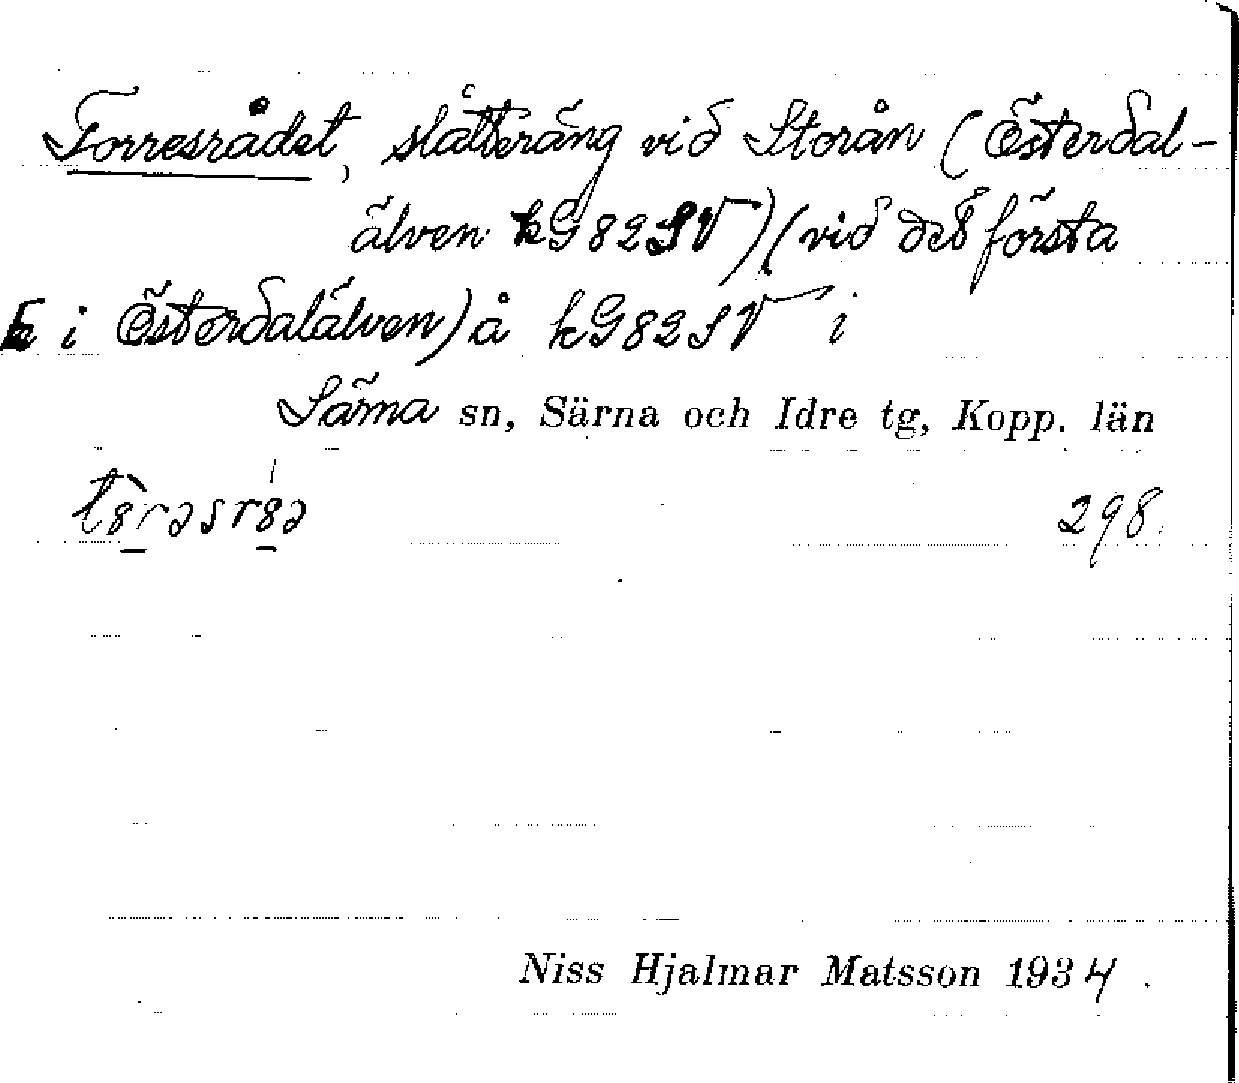 Torresrådet, slåtteräng vid Storån (Österdal-
älven kG82SV) (vid det första
h i Österdalälven) å kG82SV i
Särna sn, Särna och Idre tg, Kopp. län
298.
Niss Hjalmar Matsson 1934.